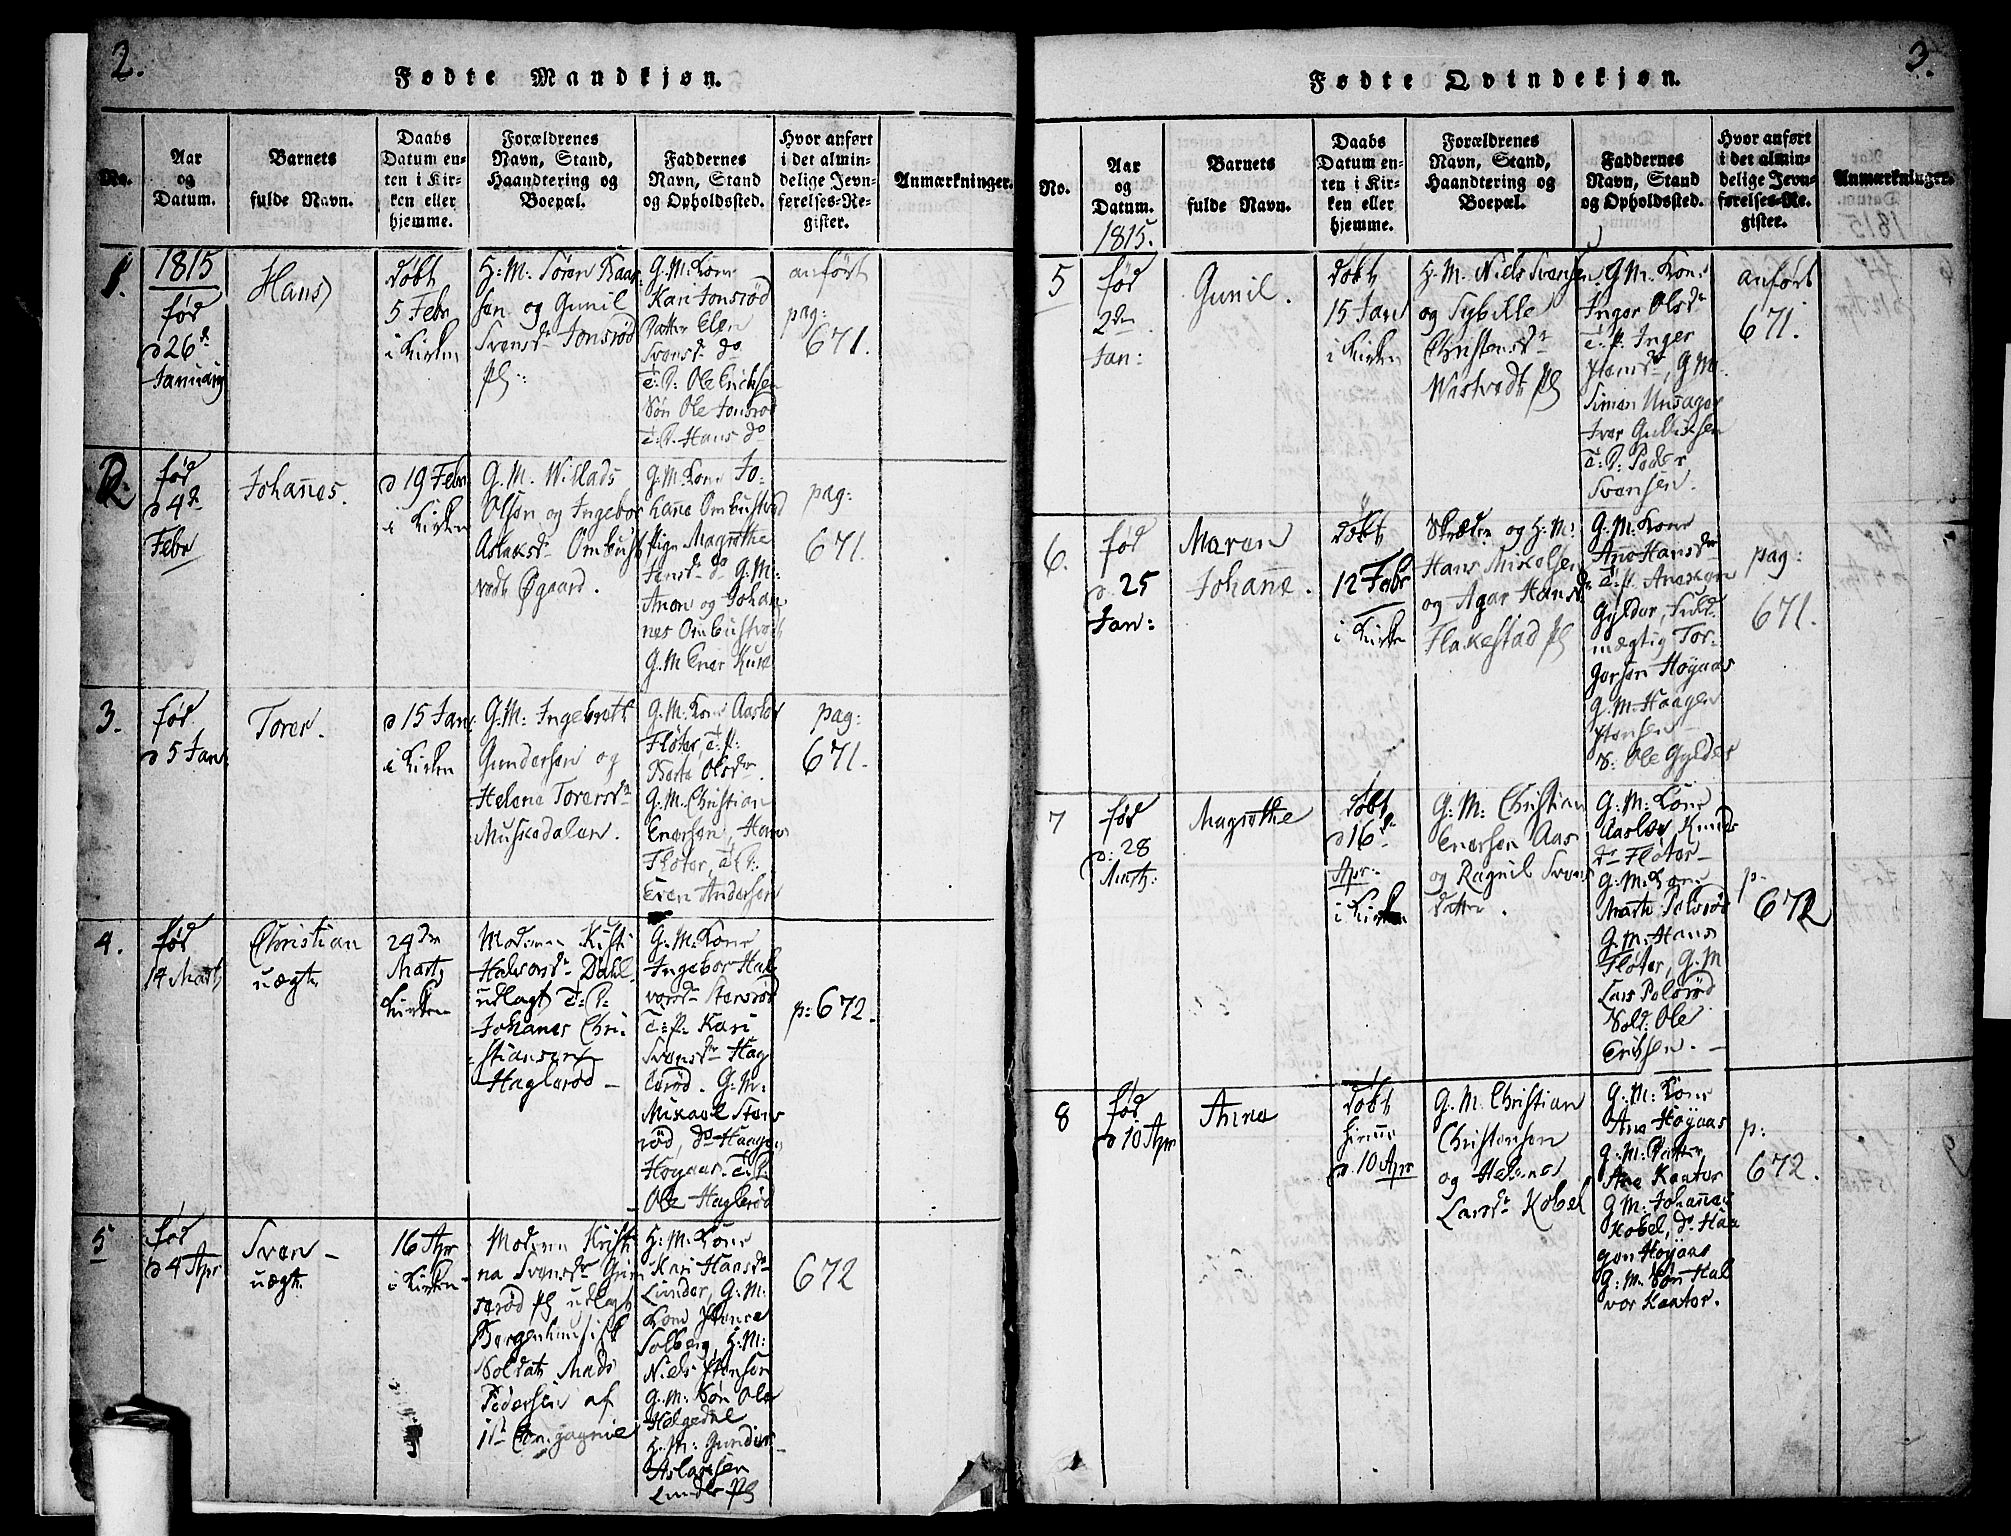 2.
Fødte Mandkjøn.
No.
Aar
og
Datum.
Barnets
fulde Navn.
Daabs
Datum en-
ten i Kir-
ken eller
hjemme.
Forældrenes
Navn, Stand,
Haandtering og
Boepæl.
Faddernes
Navn, Stand
og Opholdssted.
Hvor anført
i det almin-
delige Jevn-
førelses-Re-
gister.
Anmærkninger.
1.
1815
fød
d 26de
Januarij
Hans
døbt
5 Febr
i Kirken
H: M: Søren
sen og Gunil
Svensdr Jonsrød
Pl:
G: M: Kone
Kari Jonsrød
Datter Elen
Svensdr do
T: P: Ole Erichsen
Søn Ole Jonsrød
T: P. Hans do
anført
pag:
671.
2.
fød
d 4de
Febr
Johannes.
d 19 Febr
i Kirken
G. M. Willads
Olsen og Ingebor
Aslaksdr Ombust
vedt Øgaard.
G: M: Kone Jo-
hane Ombustved
Pige Magrethe
Jensdr do G: M:
Anon og Johan
nes Ombustvedt
G. M Ener
pag:
671.
3.
fød
d 5 Jan
Torer.
d 15 Jan
i Kirken
G: M: Ingebret
Gundersen og
Helena Torersdr
Muskedalen.
G: M: Kone Aaslov
Fløter, T: P:
Berta Olsdr.
G: M: Christian
Enersen, Hans
Fløter, T: P:
Even Andersen
pag:
671.
4.
fød
14 Marti
Christian
uægte
24de
Marti
Kirken
Moderen Kisti
Halvorsdr Dahl
udlagt T: P:
Johanes Chri
stiansen
Haglerød
G: M: Kone
Ingebor Hal
vorsdr Stensrød
T: P: Kari
Svensdr Hag
lerød. G: M:
Mikael Stens
rød, do Haagen
Høyaas. T: P:
Ole Haglerød
p: 672.
5
fød
d 4 Apr
Sven
uægte
16 Apr
i Kirken
Moderen Kristi
na Svensdr
serød Pl udlagt
Bergenhusisk
Soldat Mads
Pedersen af
1ste Compagnie
H: M: Kone
Kari Hansdr
Lunder, G: M:
Kone
Solberg, H: M:
Niels Hansen
G: M: Søn Ole
Helgedal
H: M: Gunder
Aslaksen
Lunder Pl
672
3.
Fødte Qvindekjøn.
No.
Aar
og
Datum.
1815.
Barnets
fulde Navn.
Daabs
Datum en-
ten i Kir-
ken eller
hjemme.
Forældrenes
Navn, Stand,
Haandtering og
Boepæl.
Faddernes
Navn, Stand
og Opholdssted.
Hvor anført
i det almin-
delige Jevn-
førelses-Re-
gister.
Anmærkninger.
5
fød
2den
Jan:
Gunil.
døbt
15 Jan
i Kirken
H: M. Niels Svensen
og Sybille
Christensdr
Westvedt Pl
G: M: Kone
Inger Olsdr
T: P: Inger
Hansdr, G M.
Simen Unsager
Iver Gulliksen
T: P: Peder
Svensen.
anført
671.
6.
fød
d. 25
Jan:
Maren
Johanne.
døbt
12 Febr
i Kirken
Skræder og H: M:
Hans Mikelsen
og Agar Hansdr
Flakestad Pl
G: M: Kone
Ane Hansdr
T: P: Anesken
Gylder, Fuld
mægtig Tor-
gersen Høyaas
G. M. Haagen
Hansen
S: Ole Gylder
pag:
671.
7
fød
d: 28
Marti:
Magrethe
døbt
d 16de
Apr
i Kirken
G: M: Christian
Enersen Aas
og Ragnil Svens
datter.
G: M: Kone
Aasløv Knuds
dr Fløter
G: M: Kone
Marte Polsrød
G: M: Hans
Fløter, G. M
Lars Polsrød
Sold: Ole
Erichsen.
p.
672
8
fød
d 10 Apr
Anne
døbt
hiemme
d. 10 Apr
G: M. Christian
Christensen
og Helene
Larsdr Kobel
G: M: Kone
Ane Høyaas
G: M: Datter
Ane Kantor
G: M: Johannes
Kobel, do Haa
gen Høyaas
G: M: Søn Hal
vor Kantor.
p:
672.